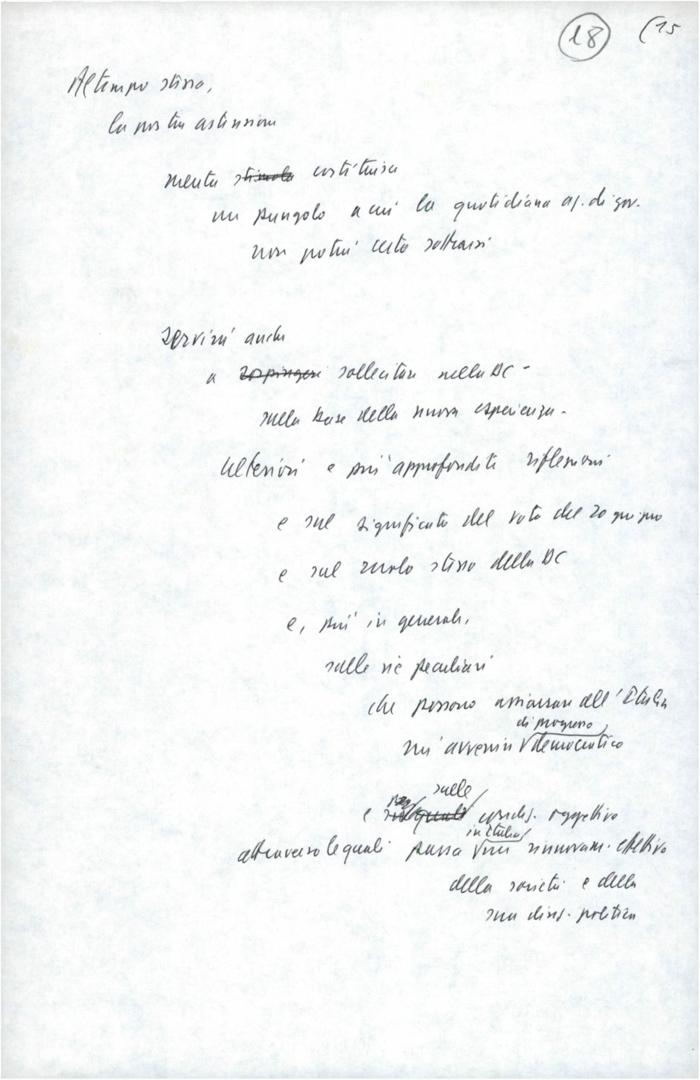 18 (15
Al tempo stesso,
la nostra astensione
mentre stimola costituisce
un pungolo a cui la quotidiana az. di gov.
non potrà certo sottrarsi
servirà anche
a sospingere sollecitare nella DC -
sulla base della nuova esperienza -
ulteriori e più approfondite riflessioni
e sul significato del voto del 20 giugno
e sul ruolo stesso della DC
e, più in generale,
sulle vie peculiari
che possono assicurare all'Italia
di progresso
un avvenire democratico
sulle
e quali condiz. oggettive
in Italia
attraverso le quali passa rinnovam. effettivo
della società e della
sua direz. politica